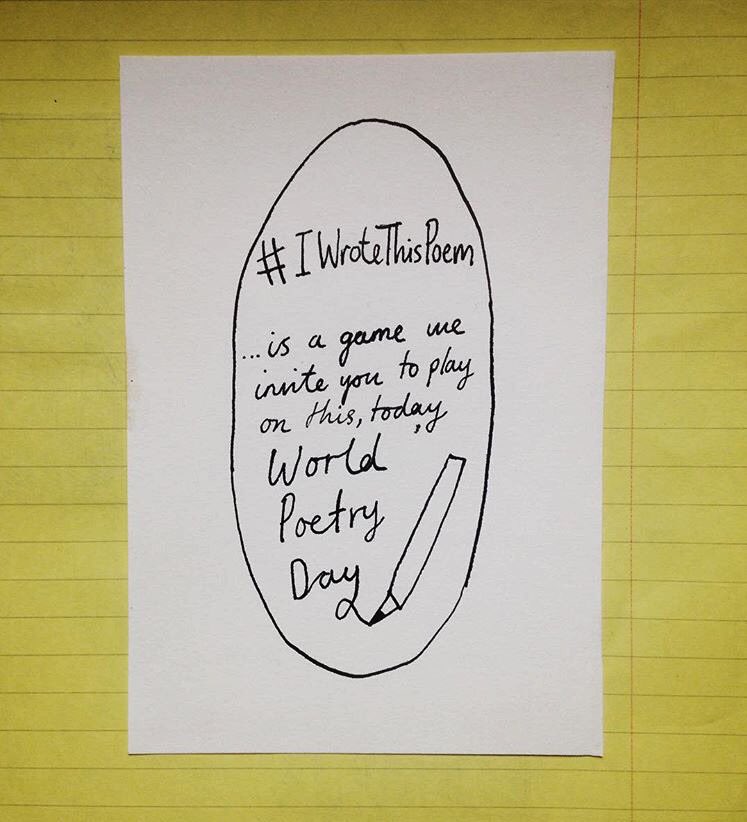 #IWroteThisPoem
...is a game we
invite you to play
on this, today,
World
Poetry
Day